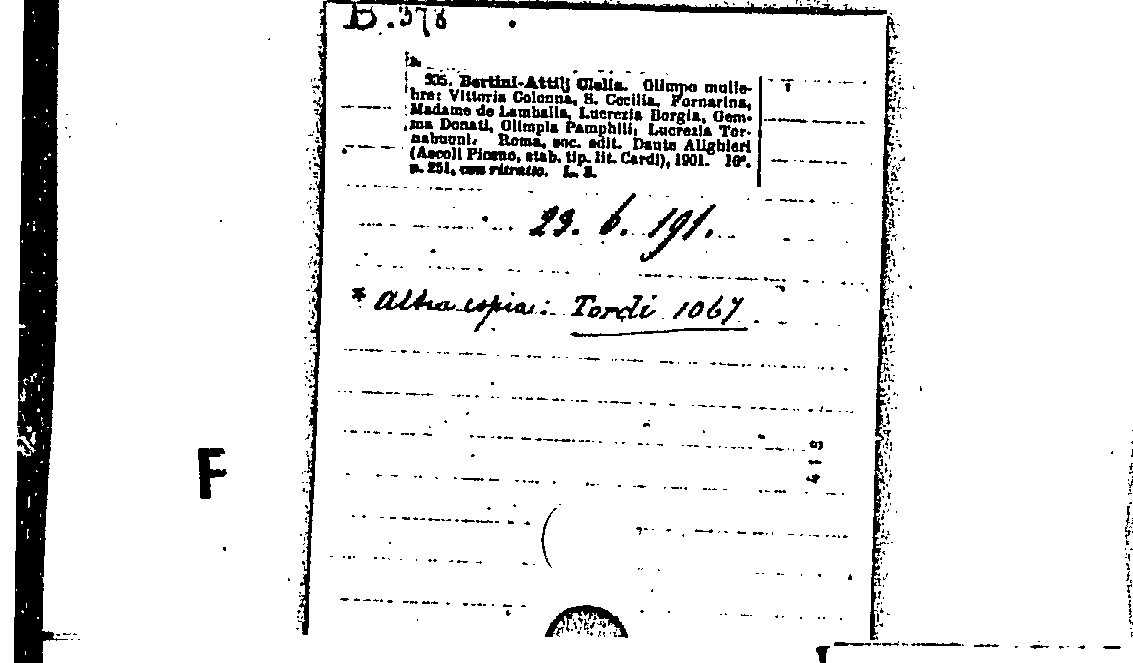 B.378
*
935. Bertini-Attilj Clelia. Olimpo mulie-
bre: Vittoria Colonna, S. Cecilia, Fornarina,
Madame de Lamballa, Lucrezia Borgia, Gem-
ma Donati, Olimpia Pamphili, Lucrezia Tor-
nabuoni. Roma, soc. edit. Dante Alighieri
(Ascoli Piceno, stab. tip. lit. Cardi), 1901. 16°.
p. 251, con ritratto. L. 3.
23. 6. 191.
* Altra copia: Tordi 1067
F
413